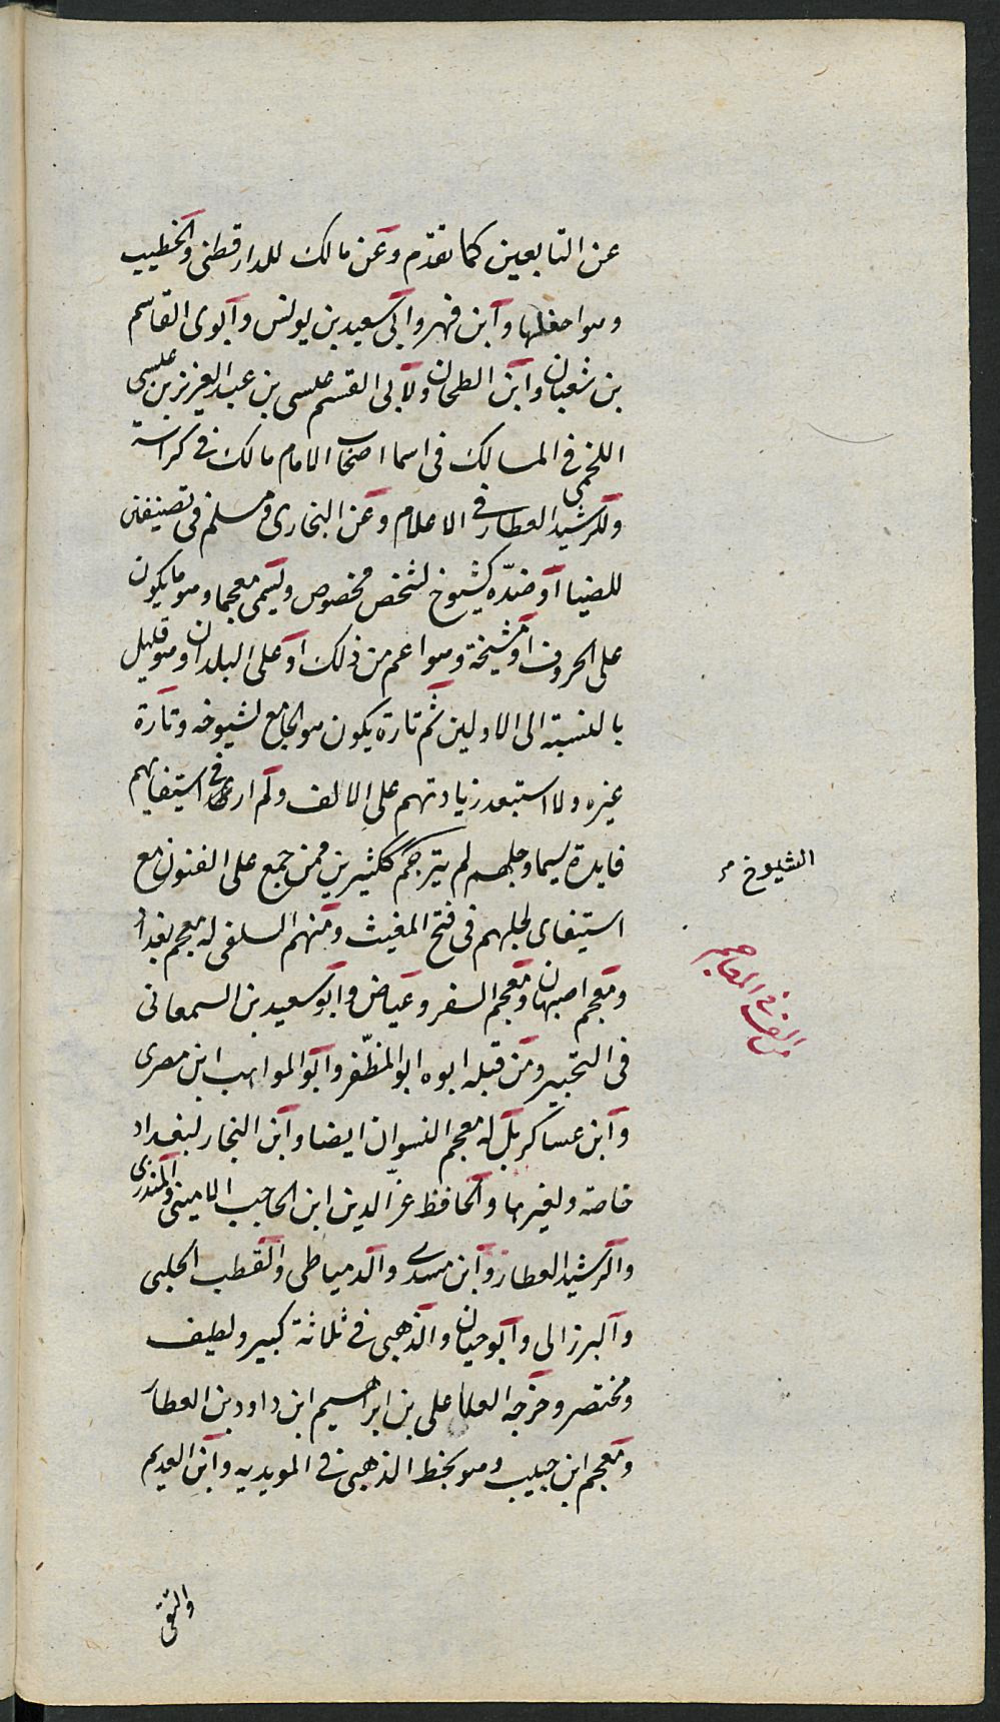 عن التابعين كما تقدّم وعن مالك للدارقطنى والخطيب
وهو احفلها وابن فهر وابى سعيد بن يونس وابوى القاسم
بن شعبان وابن الطحان ولابى القسم عيسى بن عبد العزيز بن عيسى
اللخمى فى المسالك فى اسما اصحاب الامام مالك فى كراسة
وللرشيد العطار فى الاعلام وعن البخارى ومسلم فى تصنيفين
للضيا او ضدّه كشيوخ لشخص مخصوص ويسمى معجما وهو ما يكون
على الحروف او مشيخة وهو اعم من ذلك او على البلدان وهو قليل
بالنسبة الى الاولين ثم تارة يكون هو الجامع لشيوخه وتارة
غيره ولا استبعد زيادتهم على الالف ولم ار فى استيفايهم
فايدة لاسيما وجلهم لم يترجم ككثيرين ممن جمع على الفنون مع
استيفاى لجلهم فى فتح المغيث ومنهم السلفى له معجم بغداد
ومعجم اصبهان ومعجم السفر وعياض وابو سعيد بن السمعانى
فى التحبير ومن قبله ابوه ابو المظفّر وابو المواهب ابن صصرى
وابن عساكر بل له معجم النسوان ايضا وابن النجار لبغداد
خاصة ولغيرها والحافظ عزّ الدين ابن الحاجب الامينى والمنذرى
والرشيد العطار وابن مسدى والدمياطى والقطب الحلبى
والبرزالى وابو حيان والذهبى فى ثلاثة كبير ولطيف
ومختصر وخرجه العلا على بن ابراهيم ابن داود بن العطار
ومعجم ابن حبيب وهو بخط الذهبى فى المويديه وابن العديم
والتقى
الشيوخ
من الف فى المعاجم